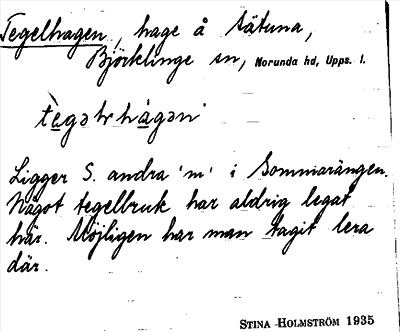 Tegelhagen, hage å Sätuna,
Björklinge sn, Norunda hd, Upps. l.
Ligger S. andra 'm' i Sommarängen.
Något tegelbruk har aldrig legat
här. Möjligen har man tagit lera
där.
STINA HOLMSTRÖM 1935